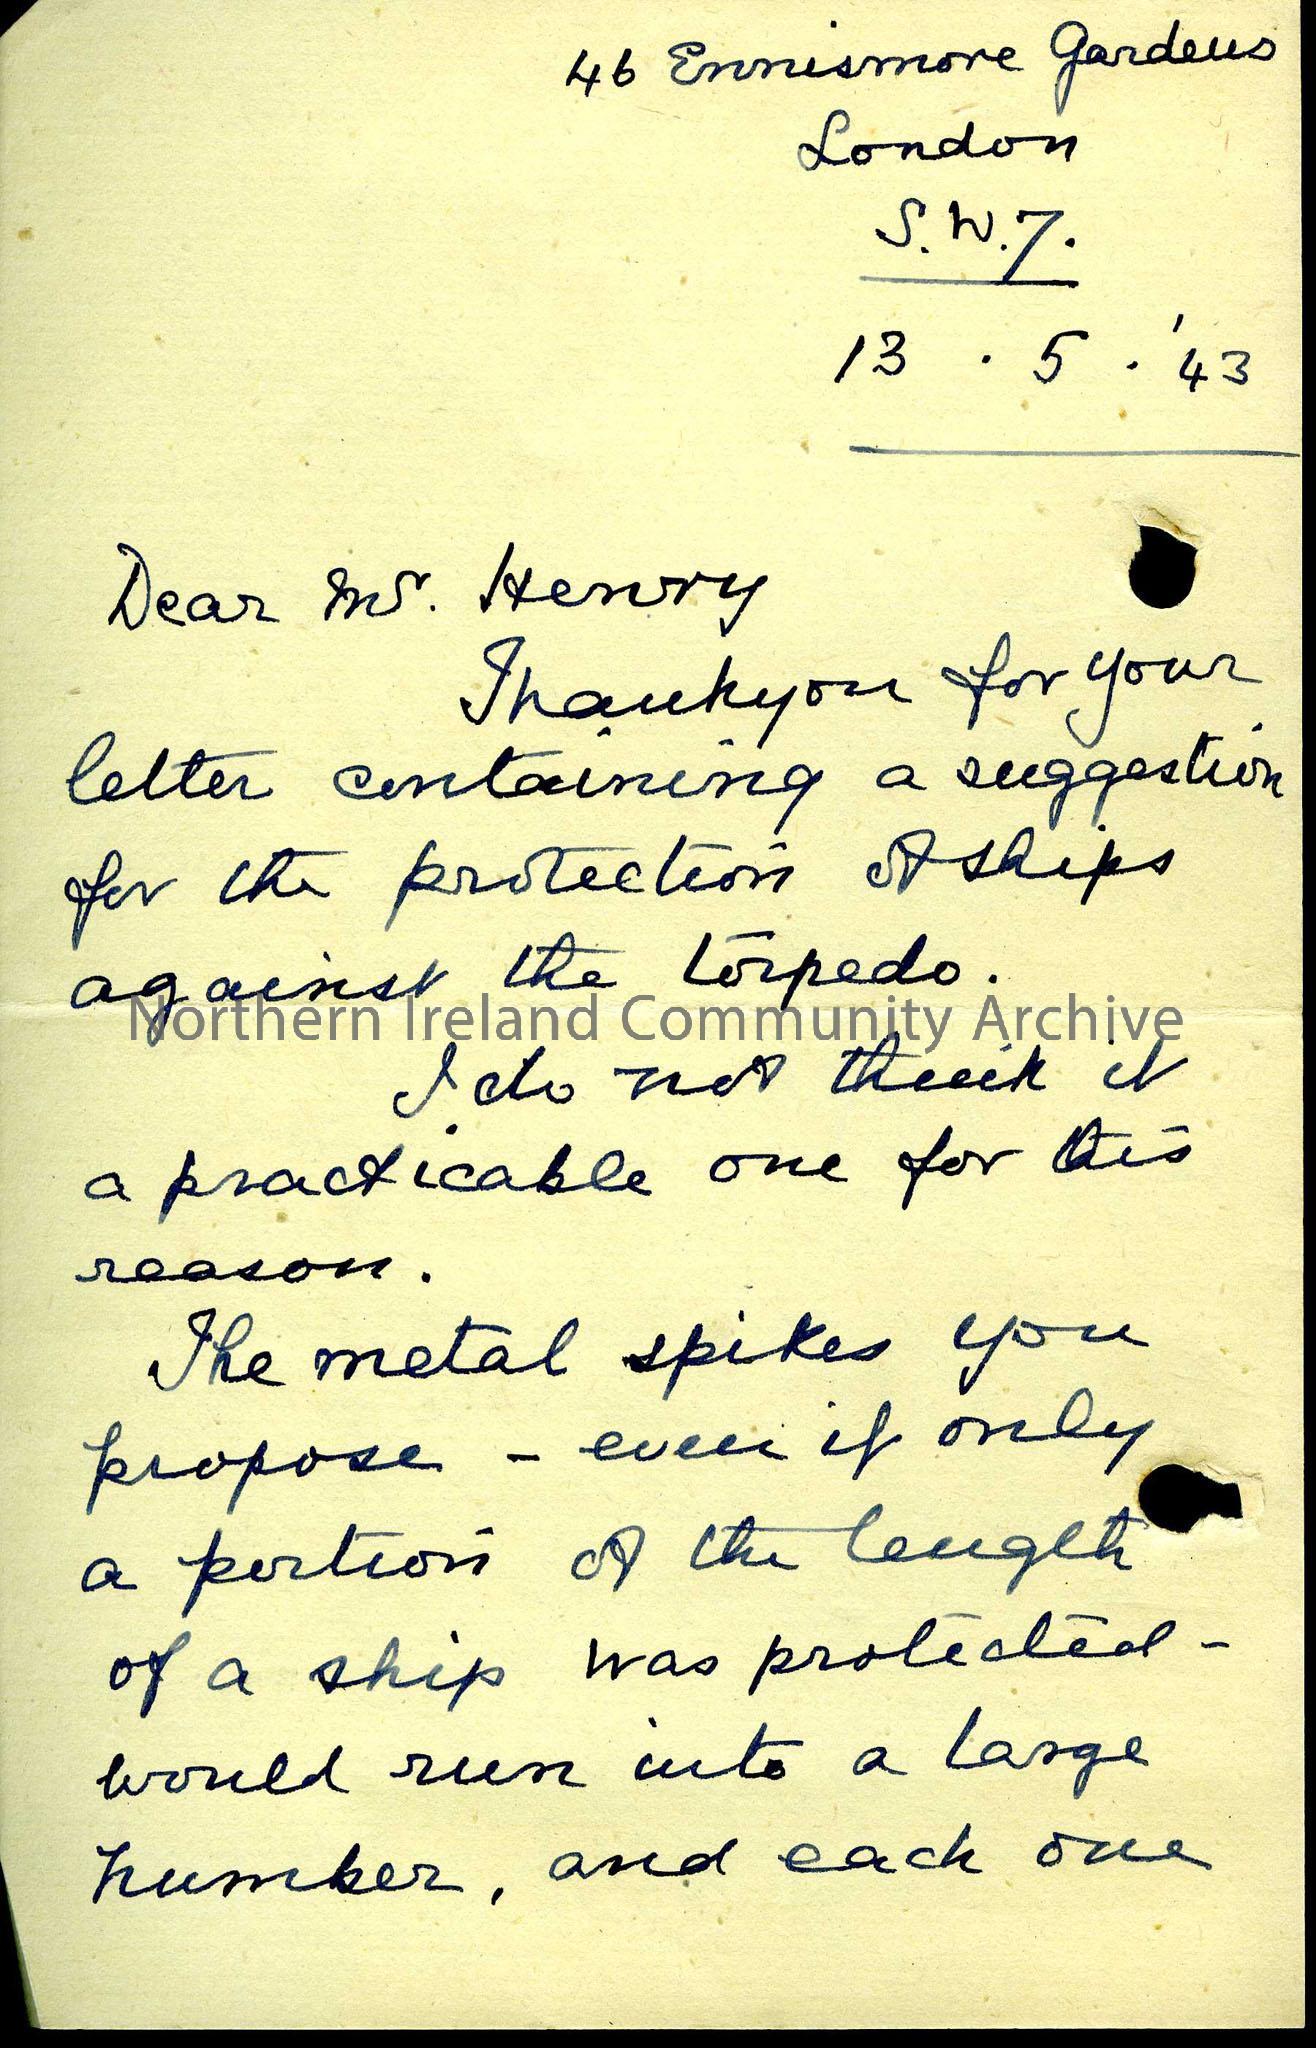 46 Ennismore Gardens
London
S.W.7.
13 . 5 . '43
Dear Mr. Henry
Thankyou for your
letter containing a suggestion
for the protection of ships
against the torpedo.
Northern Ireland Community Archive
I do not think it
a practicable one for this
reason.
The metal spikes you
propose - even if only
a portion of the length
of a ship was protected -
would run into a large
number, and each one